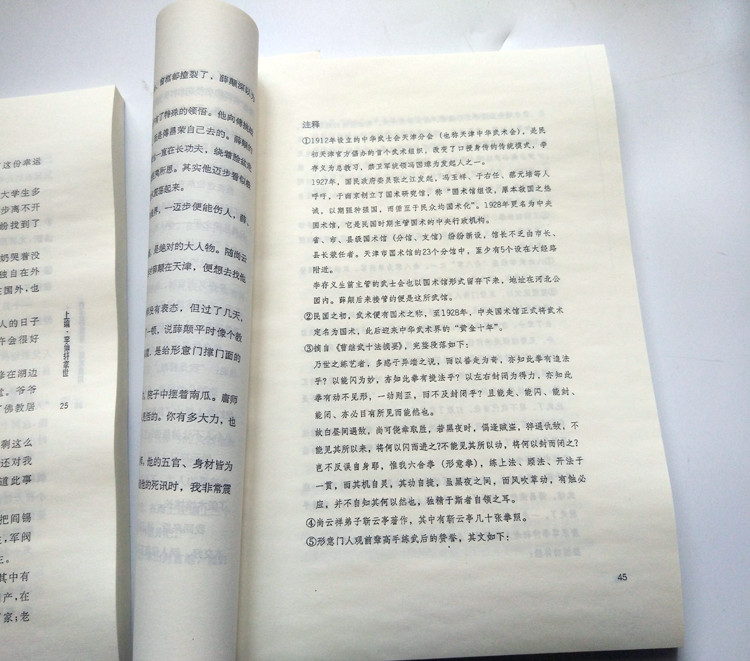 这份幸运
大学生多
步离不开
纷找到了
奶哭着没
独自在外
在国外，也
人的日子
许会很好
在湖边
爷爷
了佛教居
剩这么
还对我
道此事
把阎锡
，军阀
其中有
产，在
家；老
上编·李仲轩家世
25
撞裂了，薛颠深以为
了特殊的领悟。他向傅
荣自己去的。薛颠的
一直在长功夫，绕着脸盆
所思。其实他迈步看似
起来。
，一迈步便能伤人，薛
是绝对的大人物。随尚云
薛颠在天津，便想去找他
没有表态，但过了几天，
一顿，说薛颠平时像个教
，是给形意门撑门面的
院子中摆着南瓜。唐师
的。你有多大力，也
他的五官、身材皆为
他的死讯时，我非常震
注释
①1912年设立的中华武士会天津分会（也称天津中华武术会），是民
初天津官方倡办的首个武术组织，改变了口授身传的传统模式，李
存义为总教习，禁卫军统领冯国璋为发起人之一。
1927年，国民政府委员张之江发起，冯玉祥、于右任、蔡元培等人
呼吁，于南京创立了国术研究馆，称“国术馆组设，原本救国之热
诚，以期强种强国，而借至于民众均国术化”。1928年更名为中央
国术馆，它是民国时期主管国术的中央行政机构。
省、市、县级国术馆（分馆、支馆）纷纷新设，馆长不乏由市长、
县长兼任者。天津市国术馆的23个分馆中，至少有5个设在大经路
附近。
李存义生前主管的武士会也以国术馆形式留存下来，地址在河北公
园内。薛颠后来接管的便是这所武馆。
②民国之初，武术便有国术之称，至1928年，中央国术馆正式将武术
定名为国术，此后迎来中华武术界的“黄金十年”。
③摘自《曹继武十法摘要》，完整段落如下：
乃世之练艺者，多惑于异端之说，而以善走为奇，亦知此拳有追法
乎？以能闪为妙，亦知此拳有捷法乎？以左右封闭为得力，亦知此
拳有动不见形，一动则至，而不及封闭乎？且能走、能闪、能封、
能闭、亦必目有所见而能然也。
故白昼间遇敌，尚可侥幸取胜，若黑夜时，偶逢贼盗，猝遇仇敌，不
能见其所以来，将何以闪而进之？不能见其所以动，将何以封而闭之？
岂不反误自身耶，惟我六合拳（形意拳），练上法、顾法、开法于
一贯，而其机自灵，其动自捷，虽黑夜之间，而风吹草动，有触必
应，并不自知其何以然也，独精于斯者自领之耳。
④尚云祥弟子靳云亭著作，其中有靳云亭几十张拳照。
⑤形意门人观前辈高手练武后的赞誉，其文如下：
45